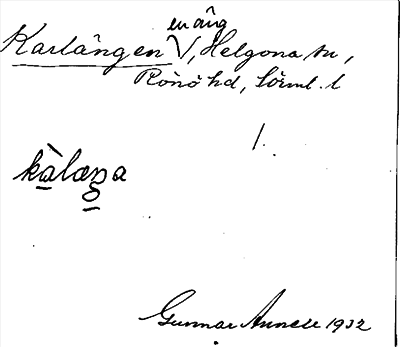 en äng
Karlängen V, Helgona sn,
Rönö hd, Sörml. l.
1.
kàlæŋa
Gunnar Annell 1932